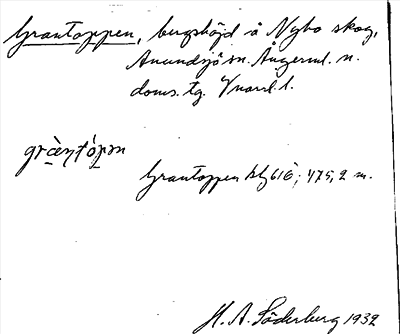 Grantoppen, bergshöjd å Nybo skog,
Anundsjö sn. Ångerml. n.
doms. tg. Vnorrl. l.
grànntópən
Grantoppen blz 61Ö; 475,2 m.
H. A. Söderberg 1932